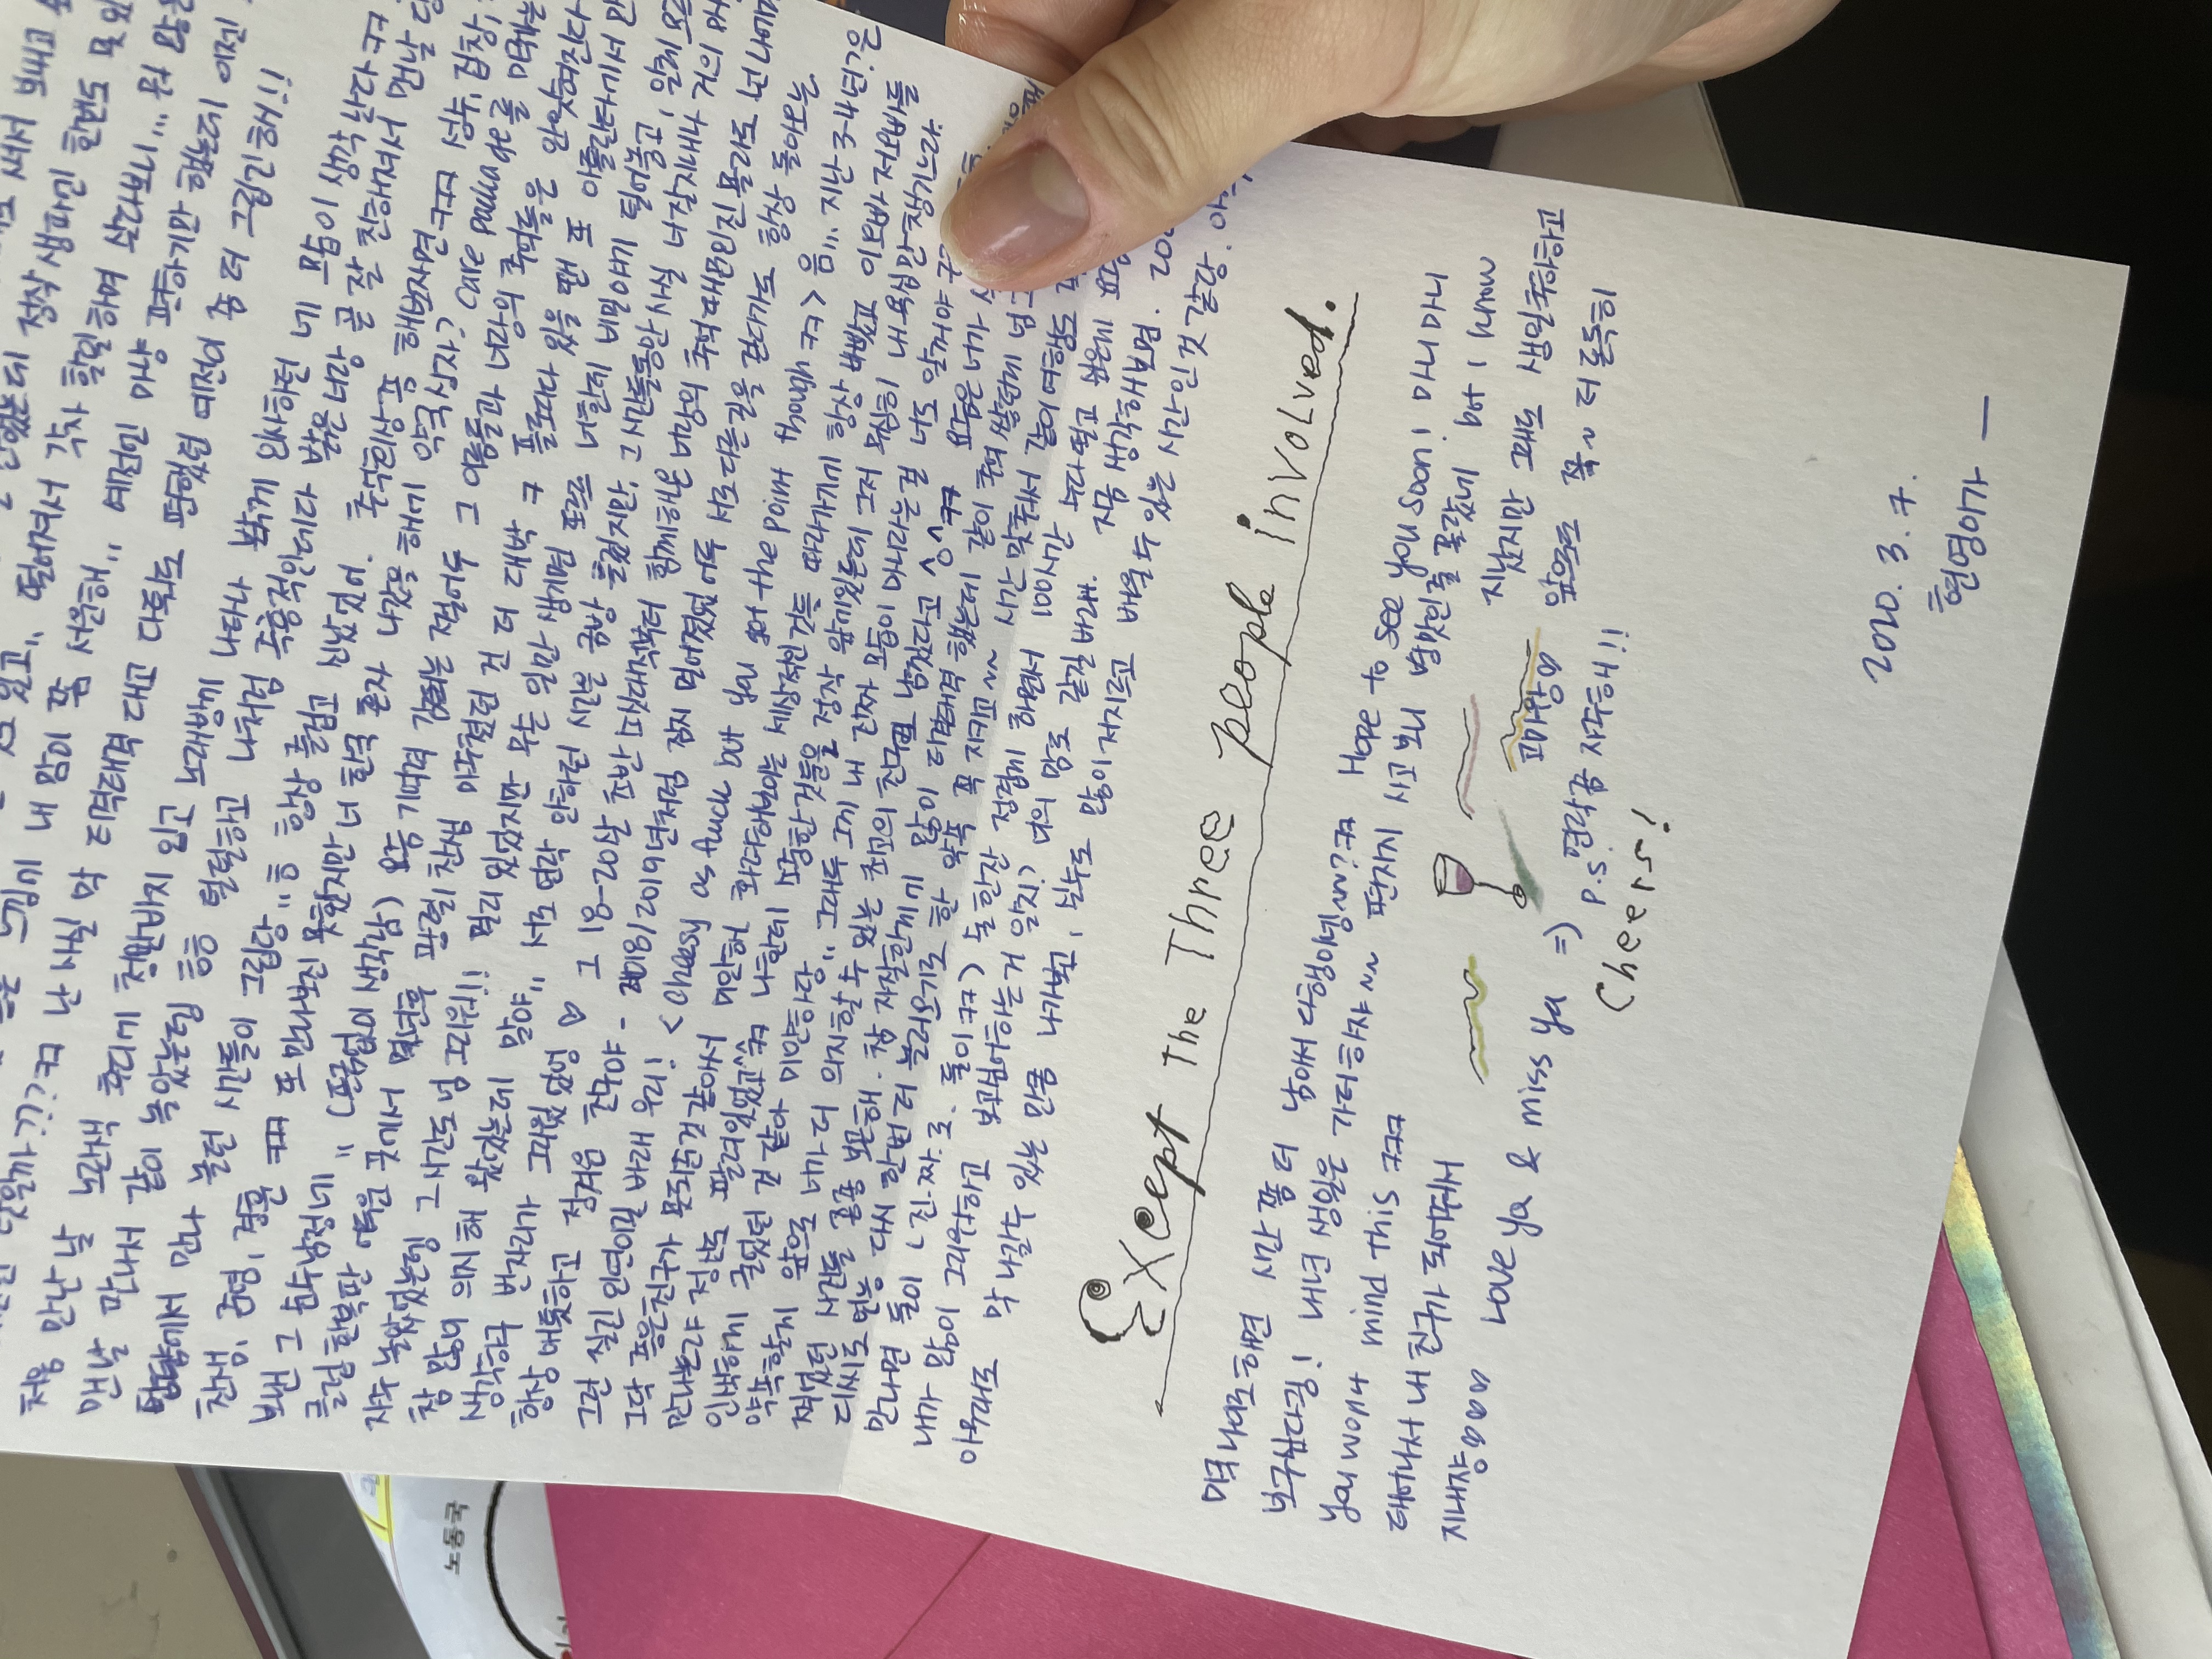 내 맘이 쫌 서운해,, 떨어져서 각자 할일하며 살다보니... 뭐 많은
난 사실 막 티격태격 대고 다퉈도 편했던 예전이 좀 더 그립긴해!!
처음 만난 날 노란색 후디에 청반바지 입고 노래방에 나타나 밝게 인사하던 네 모습이 생각난다 ㅋㅋ
맨날 만나서 같이 놀았는뎅 흥흥 털털하고 나처럼 즉흥적인데다 밝은 너랑 곧 잘 친해져서 맨날
만나 놀던 시간들이 그립당,,ㅎ 항상 즐겁고 신났었어. 추억회상쫌 해보자면 ㅋㅋㅋ 성수,
찬생, 준영, 정훈 ㅋㅋㅋ 또 만나보진 못했지만 너 한국 혼자 나갔을 해에 약국상자? care package를
보낸 그 순수남정네,, (뜬금없이 생각남) 요즘 기억력 감퇴되는 쩔어두 그 이름들과 너랑의 추억들은 안잊혀진다
클럽 한복판 어두운 곳에서 몇년후 광렬, 찬생 마주쳤던 건 더 대박 ㅋ 플로리다 있을 땐 또 아틀란타에서
자주 놀았었는뎅 그시간도 넘 그리워!! 멀리 있었지만 무슨 일만 생기면 쪼르르 너한테 비밀얘기 털어놓고,
참 많이 의지해 왔었는데 말야,, 서로 연락 안하던 시간은 금방 흘렀지만, 그시간들동안 사실 너 잘지내나 거의
생각하구 빈자리가 그리웠었엉 ♡ 그 18-20살 초반 부터 함께해온 너랑의 추억 때문인진 몰라도 넌 나에게
항상 애틋하고 정겨운 친구야 - 2018/2019년처럼 잠시 멀어졌었어두 서로 다른길을 걷다가도 항상 돌아오는
그런 질긴 인연이길 바래 우리! < cheesy as fuck but you get the point though ㅋㅋ > 음... 지난 3-4년?은
그닥 좋은친구가 못되준것 같아서 미안해. 화려해보이는 세상적인것들 따라가기에 항상 바빴고 이오빠 저오빠들
만나느라 정신도 팔려있었고^^ㅋㅋ 나한테 소중한것들을 정작 앞에있는데 그저 무심히 내욕심만 챙기느라.
인색하게 굴었던 것 같아 미안하당,, 그래두 그게 내 진짜 모습이 아니라는걸 너도 알꺼야
약속할게 앞으로 너가 더 의지할 수 있는 최고의 친구로 남겠다고 ^o^ㅋㅋ 요즘은 너가
찍었던 사진들 종종 보곤해. 참 자잘한게에 많이 티격태격 했는데 같이 추억 쌓던게 넘
디씨도 언능 다시 한번 더 놀러오기로 한 약속 꼭 지키고~~ 시간 맞춰서 같이 여행도
만나면 둘이 (진.짜.로. 둘이ㅋㅋ) 술 한잔 정겹게 하면서 100시간 수다 떨고 싶은게
내가 많이 그리워하고 보고싶어하는거 알지? 너의 맘도 같길 바래. 지금 생각해보면.
아무래도 막 나갈수 있는 만큼 나가보고, 실수도 많이 저지르고 배울수 있은 시간인것 같당.
Except The Three people involved.
미국나이로하면 시간 쫌 더 남아서 다행이넹~~?ㅋㅋ Hope to see you soon! 마니마니
보구싶다궁! 내년 생일은 같이하쟈~~ 편지지 사고보니 병맛인줄 몰랐네 but i know
you won't mind this ㅋㅋㅋ
지났지만 그래도 생일축하하고
태어나서 내 친구가 되어줘서
고마왕♡
앞으로도 쭉~ 더 돈독히
지내쟝♡♡♡ Love ya & miss ya =)
P.S. 연락쫌 자주해!!
Cheers!
2020. 3. 7.
현영이가 —
노동국